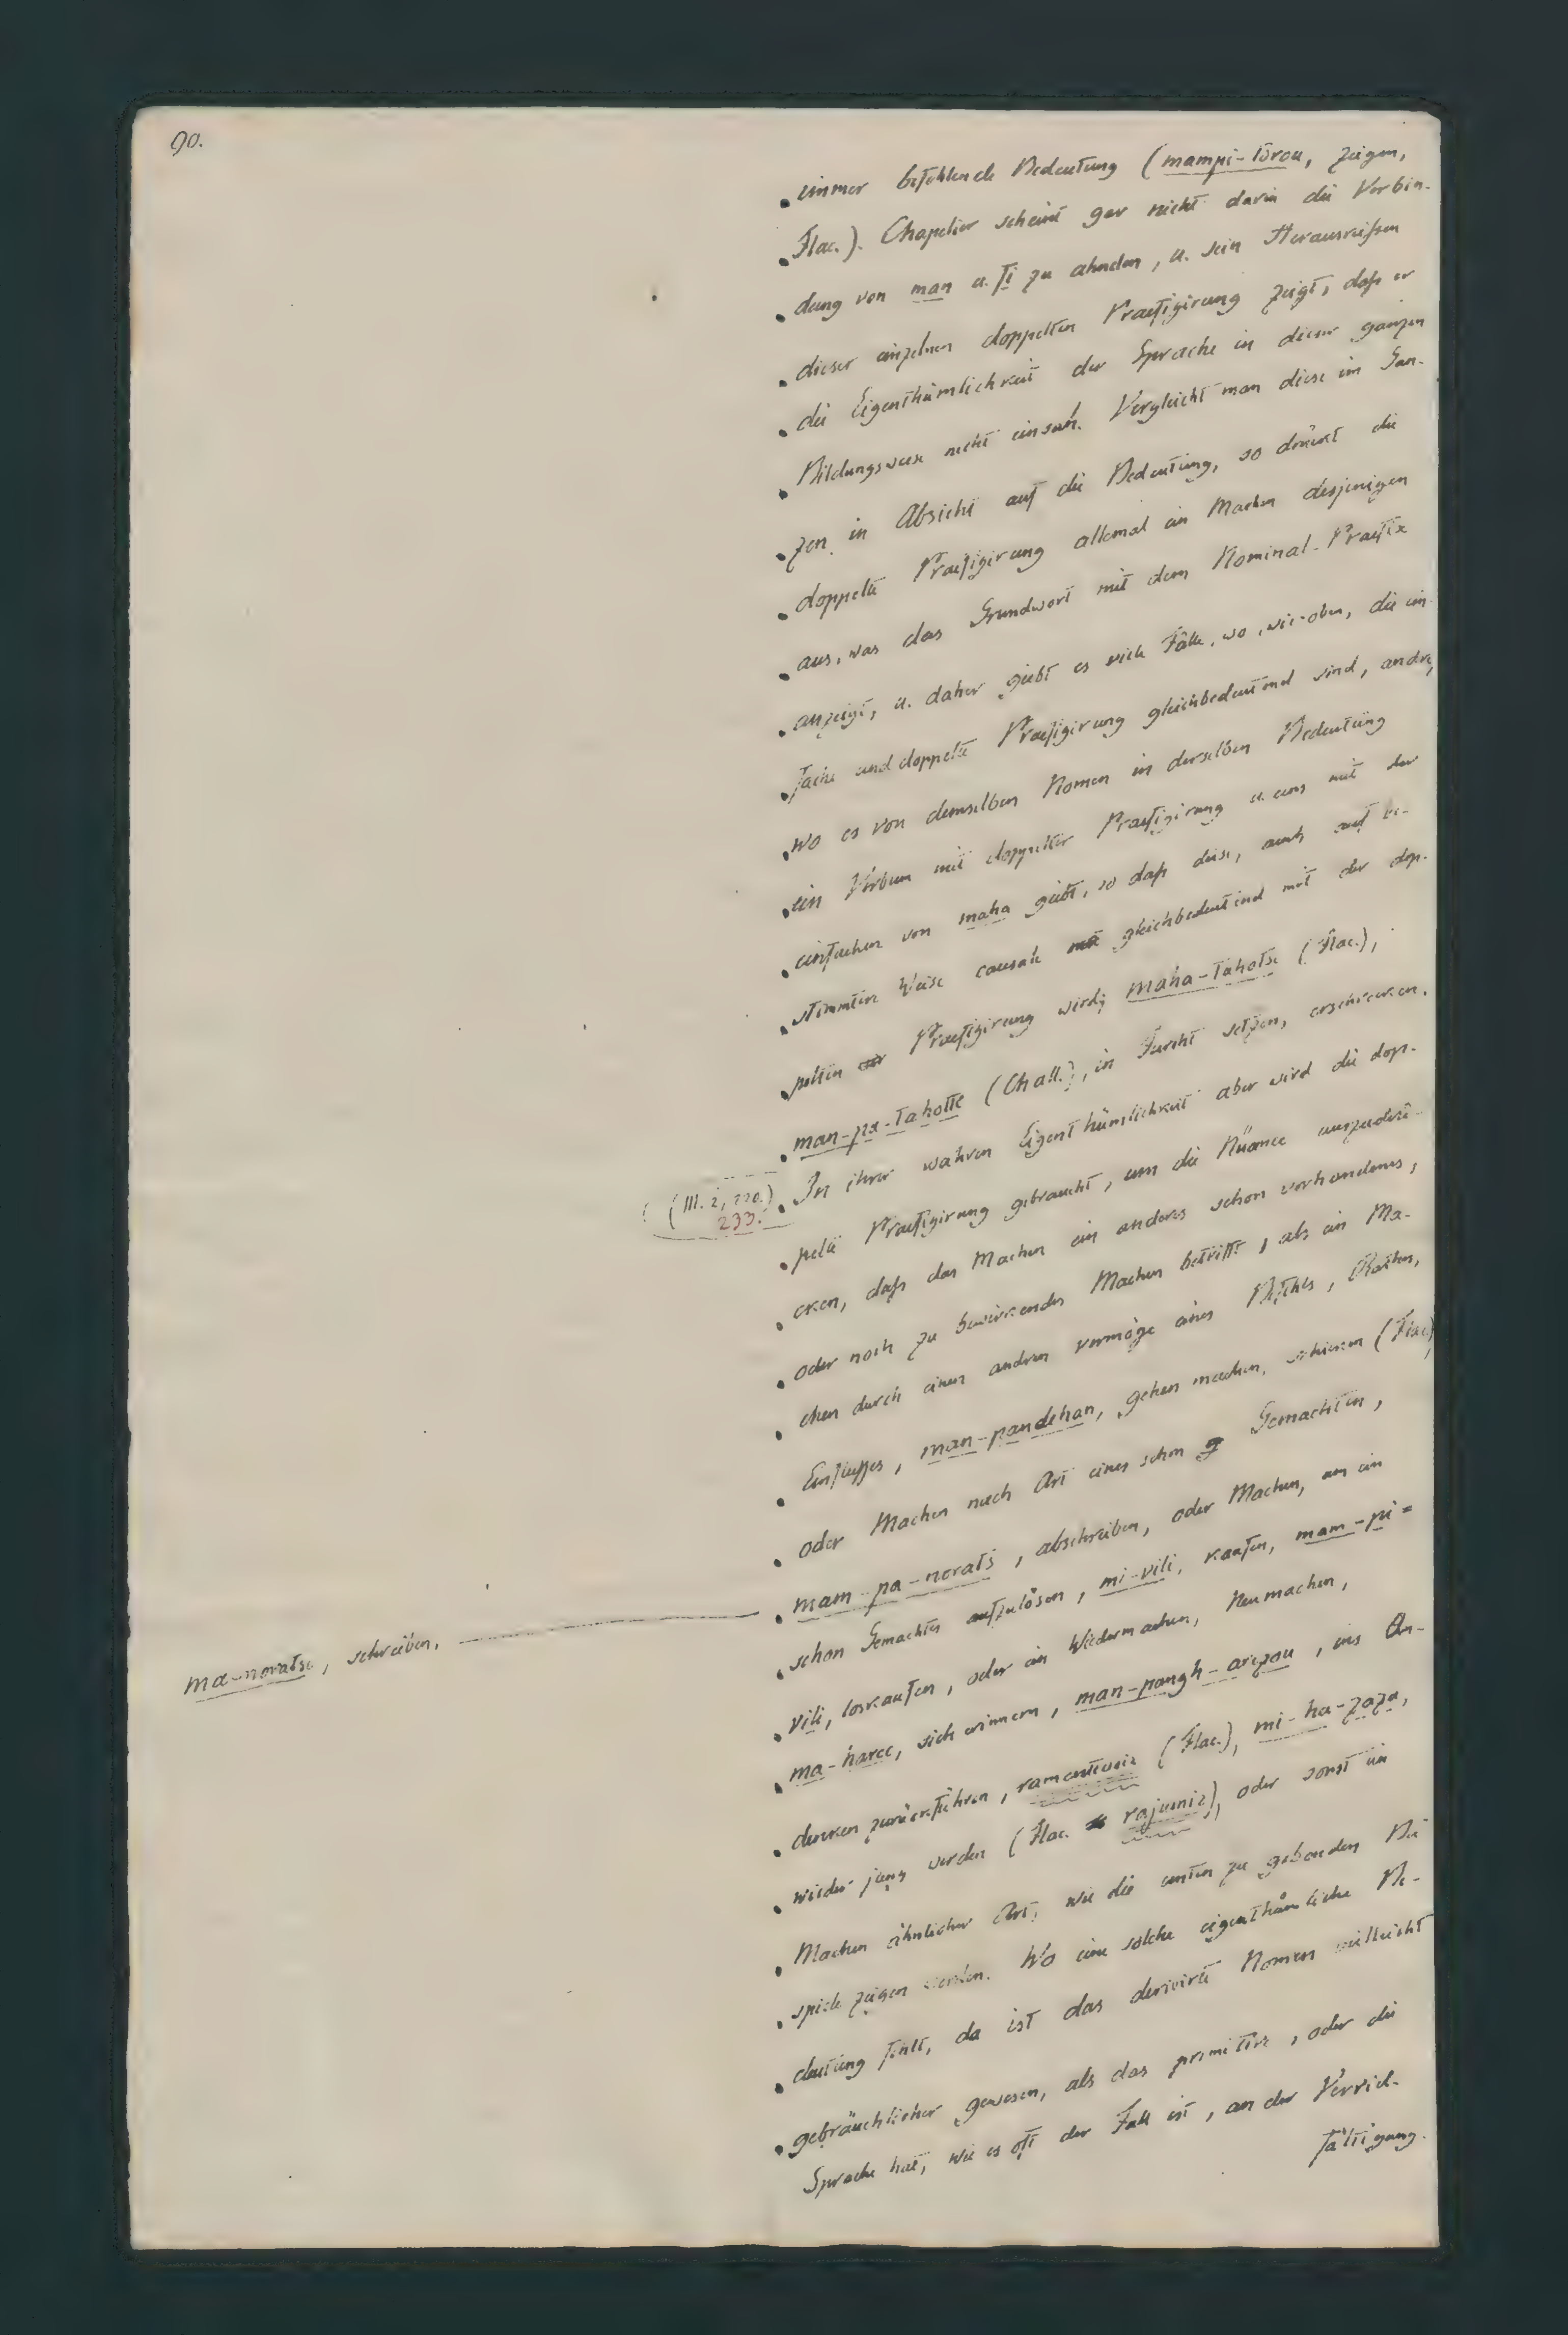 90.
immer befehlende Bedeutung (mampi-torou, zeigen,
Flac.). Chapelier scheint gar nicht darin die Verbin-
dung von man u. fi zu ahnden, u. sein Herausreißen
dieser einzelnen doppelten Praefigirung zeigt, daß er
die Eigenthümlichkeit der Sprache in dieser ganzen
Bildungsweise nicht einsah. Vergleicht man diese im Gan-
zen in Absicht auf die Bedeutung, so drückt die
doppelte Praefigirung allemal ein Machen desjenigen
aus, was das Grundwort mit dem Nominal-Praefix
anzeigt, u. daher giebt es viele Fälle, wo, wie oben, die ein-
fache und doppelte Praefigirung gleichbedeutend sind, andre,
wo es von demselben Nomen in derselben Bedeutung
ein Verbum mit doppelter Praefigirung u. eins mit der
einfachen von maha giebt, so daß diese, auch auf be-
stimmtere Weise causale gleichbedeutend mit der dop-
pelten Praefigirung wird; maha-tahotse (Flac.),
man-pa-tahotte (Chall.), in Furcht setzen, erschrecken.
(III. 2, 220.)
233.
In ihrer wahren Eigenthümlichkeit aber wird die dop-
pelte Praefigirung gebraucht, um die Nüance auszudrü-
cken, daß das Machen ein anderes schon vorhandenes,
oder noch zu bewirkendes Machen betrifft, als ein Ma-
chen durch einen andren vermöge eines Befehls, Rathes,
Einflußes, man-pandehan, gehen machen, schicken (Flac.),
oder Machen nach Art eines schon Gemachten,
mam-pa-norats, abschreiben, oder Machen, um ein
ma-noratse, schreiben.
schon Gemachtes aufzulösen, mi-vili, kaufen, mam-pi=
vili, loskaufen, oder ein Wiedermachen, Neumachen,
ma-harec, sich erinnern, man-pangh-arezou, ins An-
denken zurückführen, ramentevoir (Flac.), mi-ha-zaza,
wieder jung werden (Flac. rajeunir), oder sonst ein
Machen ähnlicher Art, wie die unten zu gebenden Bei
spiele zeigen werden. Wo eine solche eigenthümliche Be-
deutung fehlt, da ist das derivirte Nomen vielleicht
gebräuchlicher gewesen, als das primitive, oder die
Sprache hat, wie es oft der Fall ist, an der Verviel-
fältigung